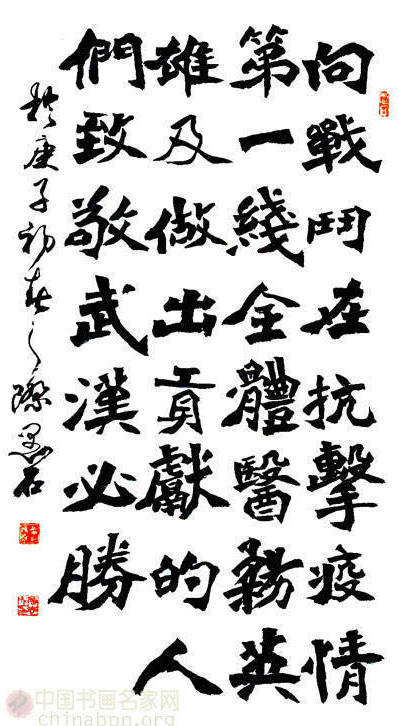 向戰鬥在抗擊疫情
第一綫全體醫務英
雄及做出貢獻的人
們致敬武漢必勝
於庚子初春之際石
中国书画名家网
chinabpn.org